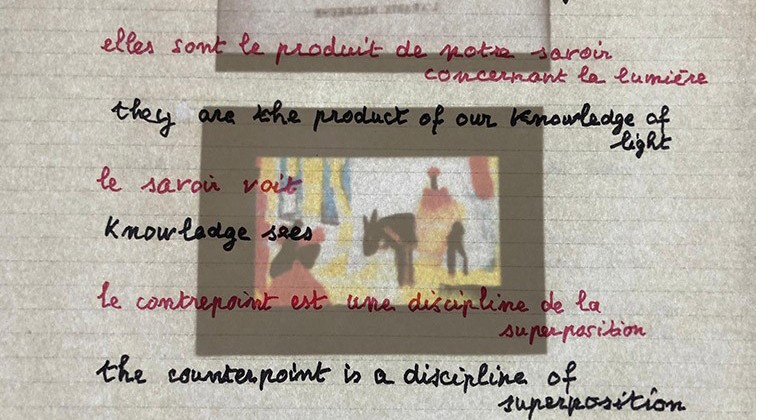 elles sont le produit de notre savoir
concernant la lumière
they are the product of our knowledge of
light
le savoir voit
Knowledge sees
le contrepoint est une discipline de la
superposition
the counterpoint is a discipline of
superposition